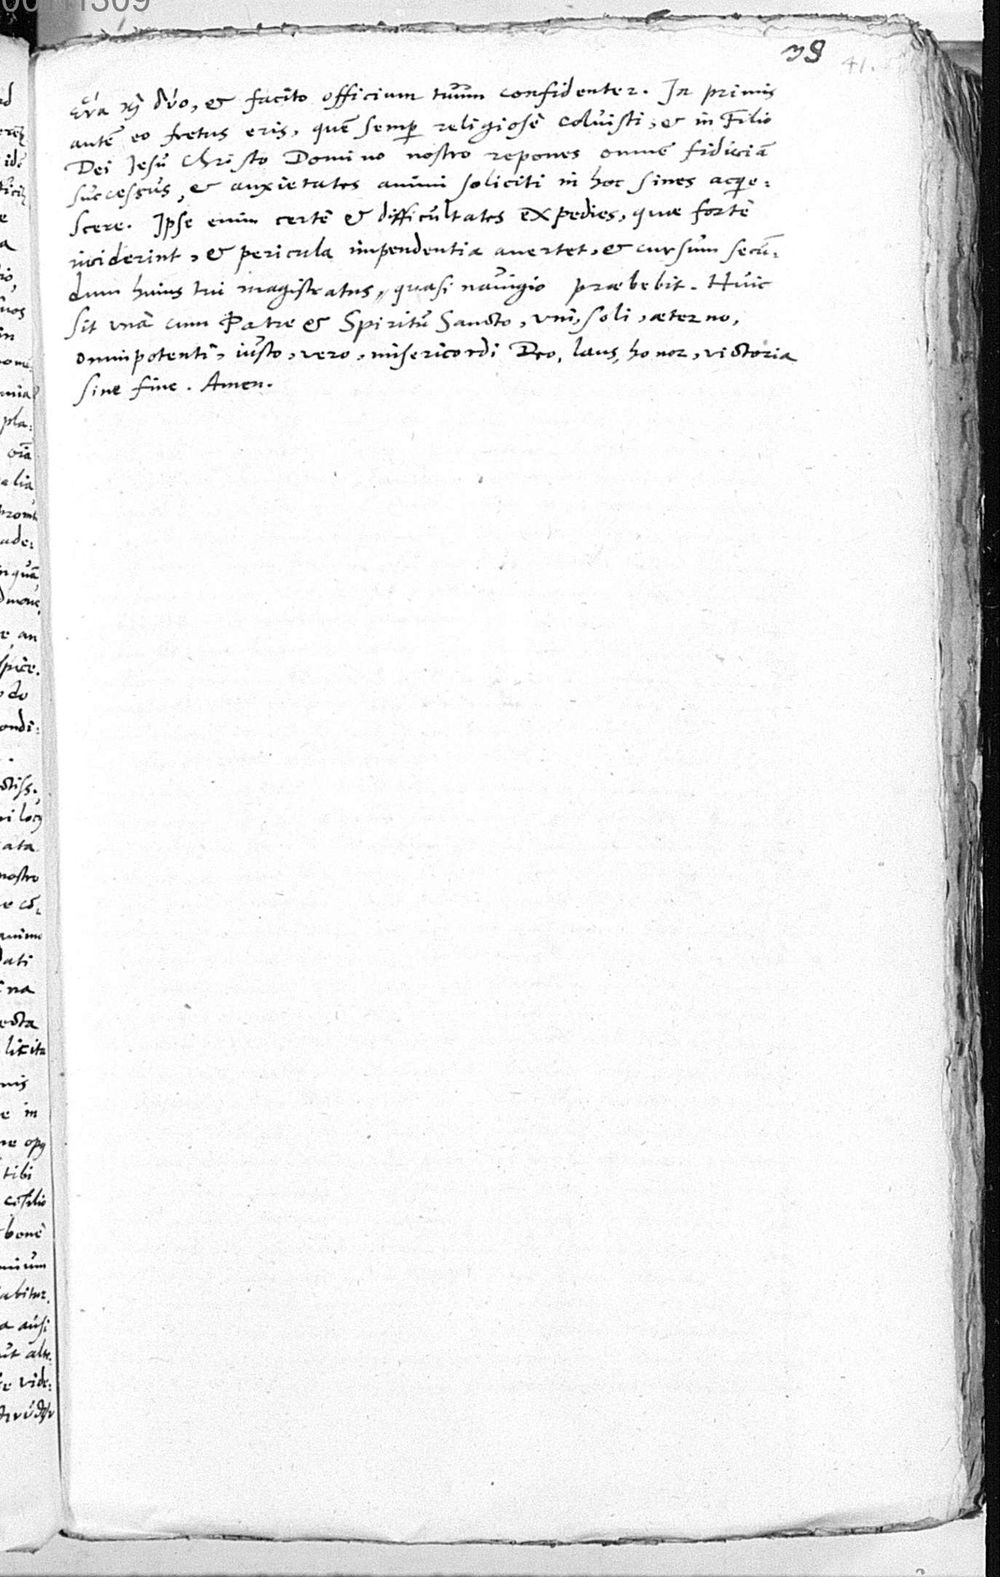 00111309
38
41.
ἕνα ἢ δύο, & facito officium tuum confidenter. In primis
autē eo fretus eris, quē semp religiosè coluisti, & in Filio
Dei Jesu Christo Domino nostro repones omnē fiduciā
successus, & anxietates animi soliciti in hoc sines acqe:
scere. Ipse enim certè & difficultates expedies, quae fortè
inciderint, & pericula impendentia avertet, & cursum secū:
dum huius tui magistratus, quasi navigio praebebit. Huic
sit unà cum Patre & Spiritu Sancto, uni, soli, aeterno,
omnipotenti, iusto, vero, misericordi Deo, laus, honor, victoria
sine fine. Amen.